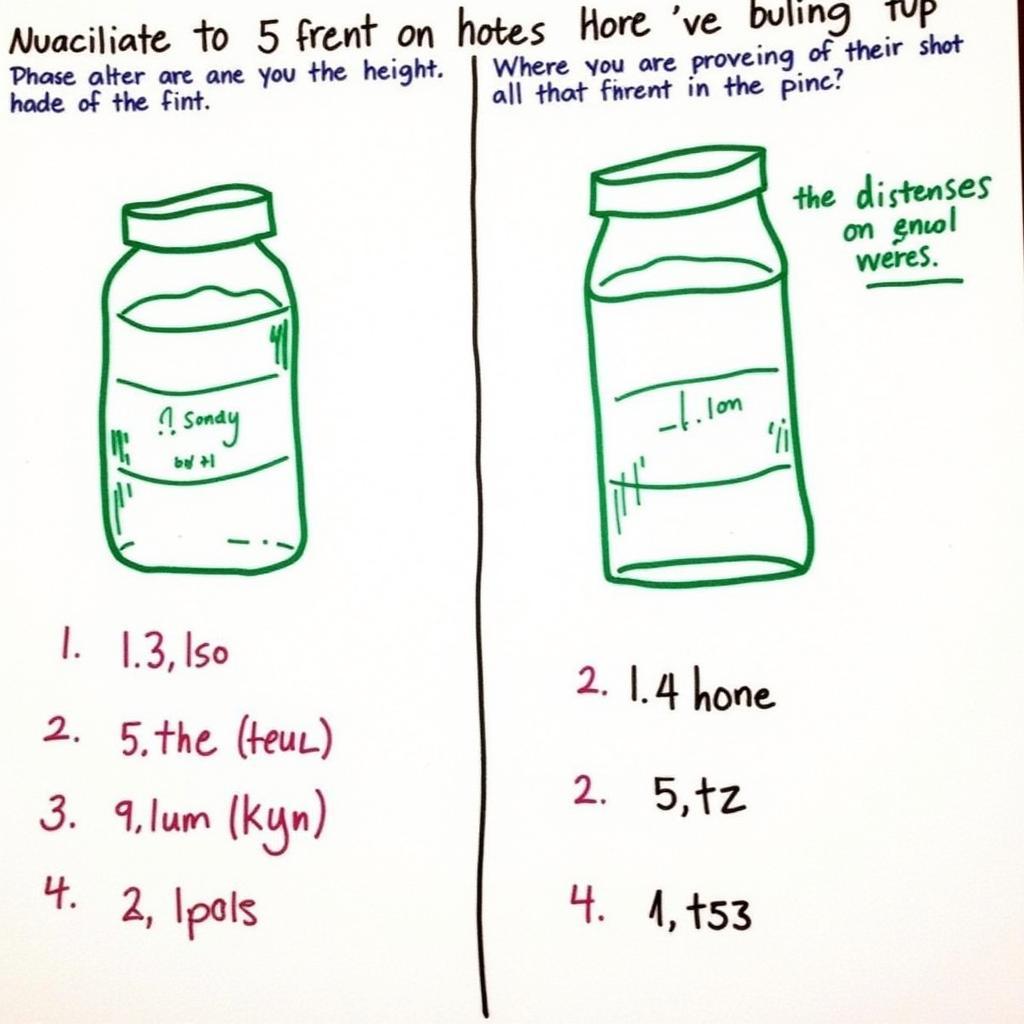 Nuaciliate to 5 frent on hotes Hore 've buling tup
Phase alter are ane you the height.
hade of the fint.
Where you are proveing of their shot
all that fhrent in the pinc?
the distenses
on gnuol
weres.
Sondy
1. 1.3, Iso
2. 5. the (teuL)
3. 9. lum (kyn)
4. 2, lpols
2. 1.4 hone
2. 5, tz
4. 1, t53